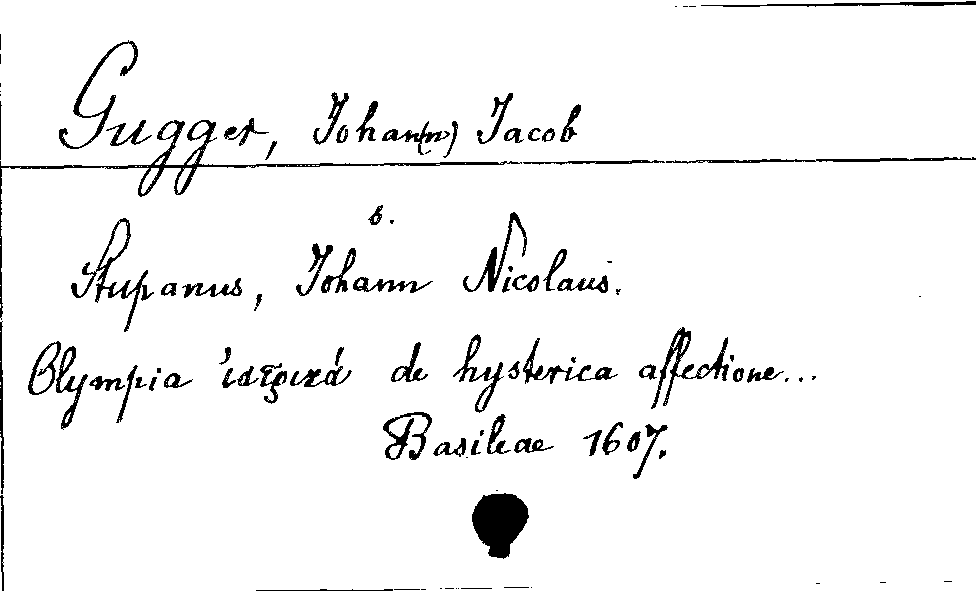 Gugger, Johan(n) Jacob
s.
Stupanus, Johann Nicolaus.
Olympia ἰατρικά de hysterica affectione...
Basileae 1607.